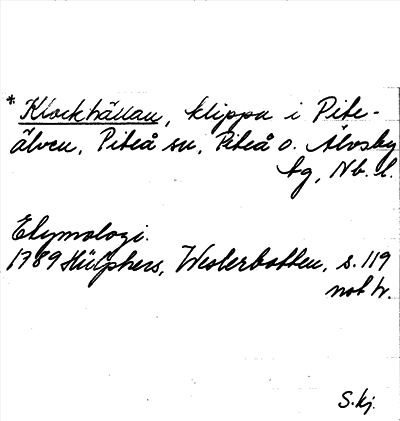 * Klockhällan, klippa i Pite-
älven, Piteå sn, Piteå o. Älvsby
tg, Nb. l.
Etymologi.
1789 Hülphers, Westerbotten, s. 119
not w.
S. kj.